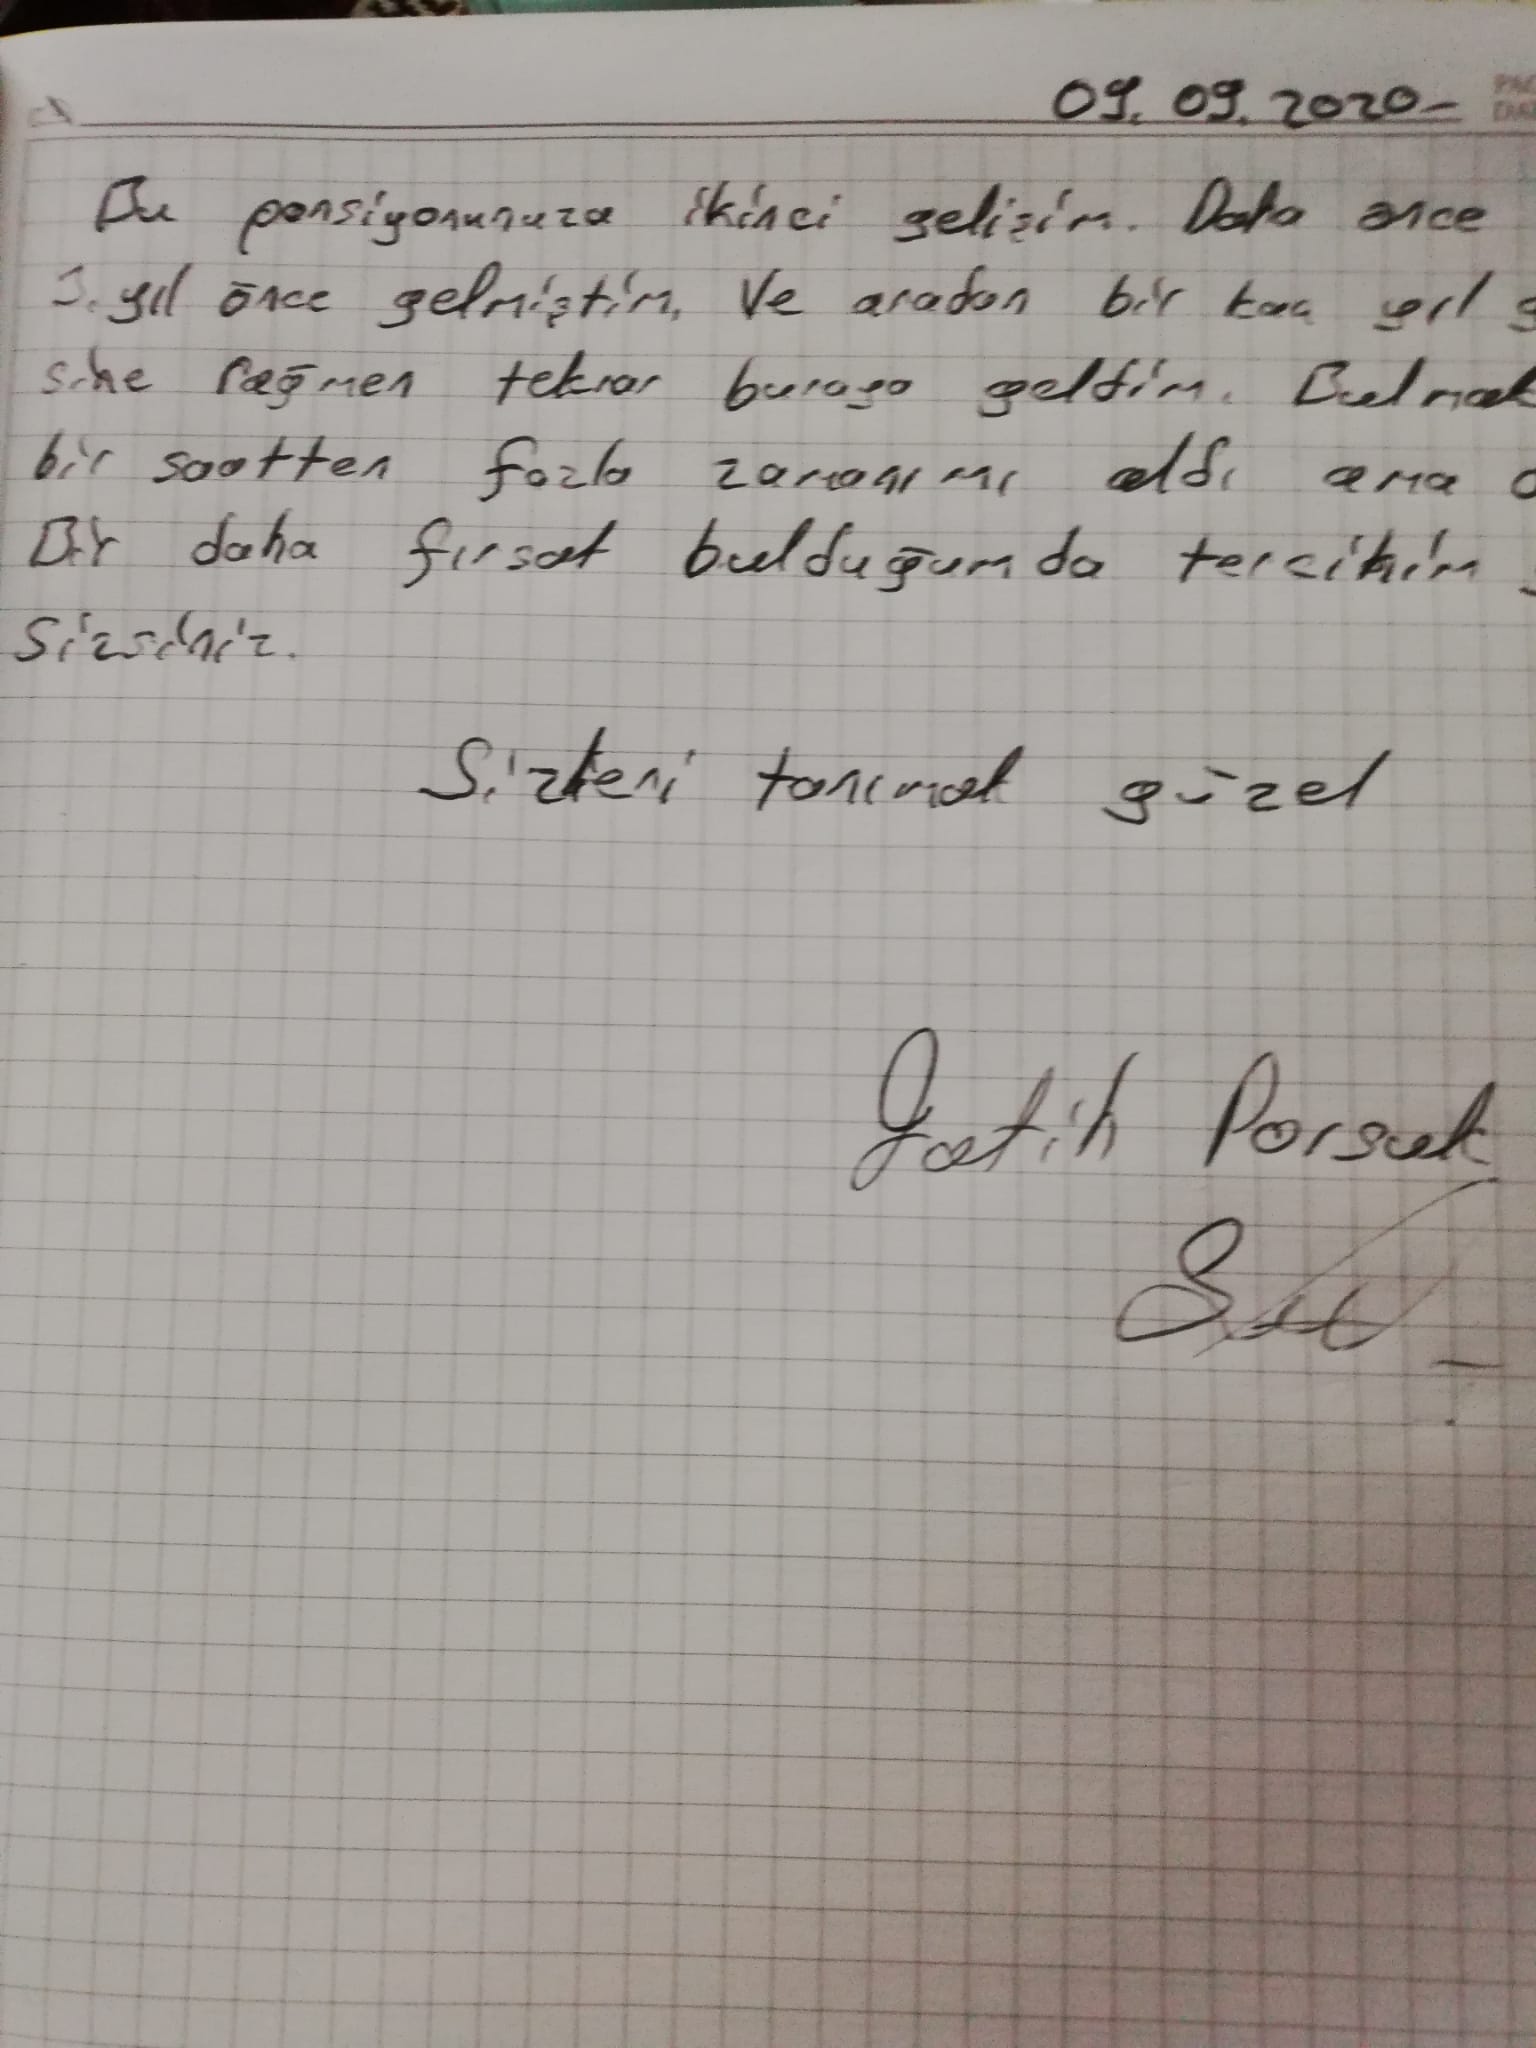 09.09.2020-
Bu pansiyonunuza ikinci gelişim. Daha önce
yıl önce gelmiştim. Ve aradan bir kaç yıl
sine rağmen tekrar buraya geldim. Bulmak
bir saatten fazla zamanımı aldı ama
Bir daha fırsat bulduğumda tercihim
Sizsiniz.
Sizleri tanımak güzel
Fatih Porsuk